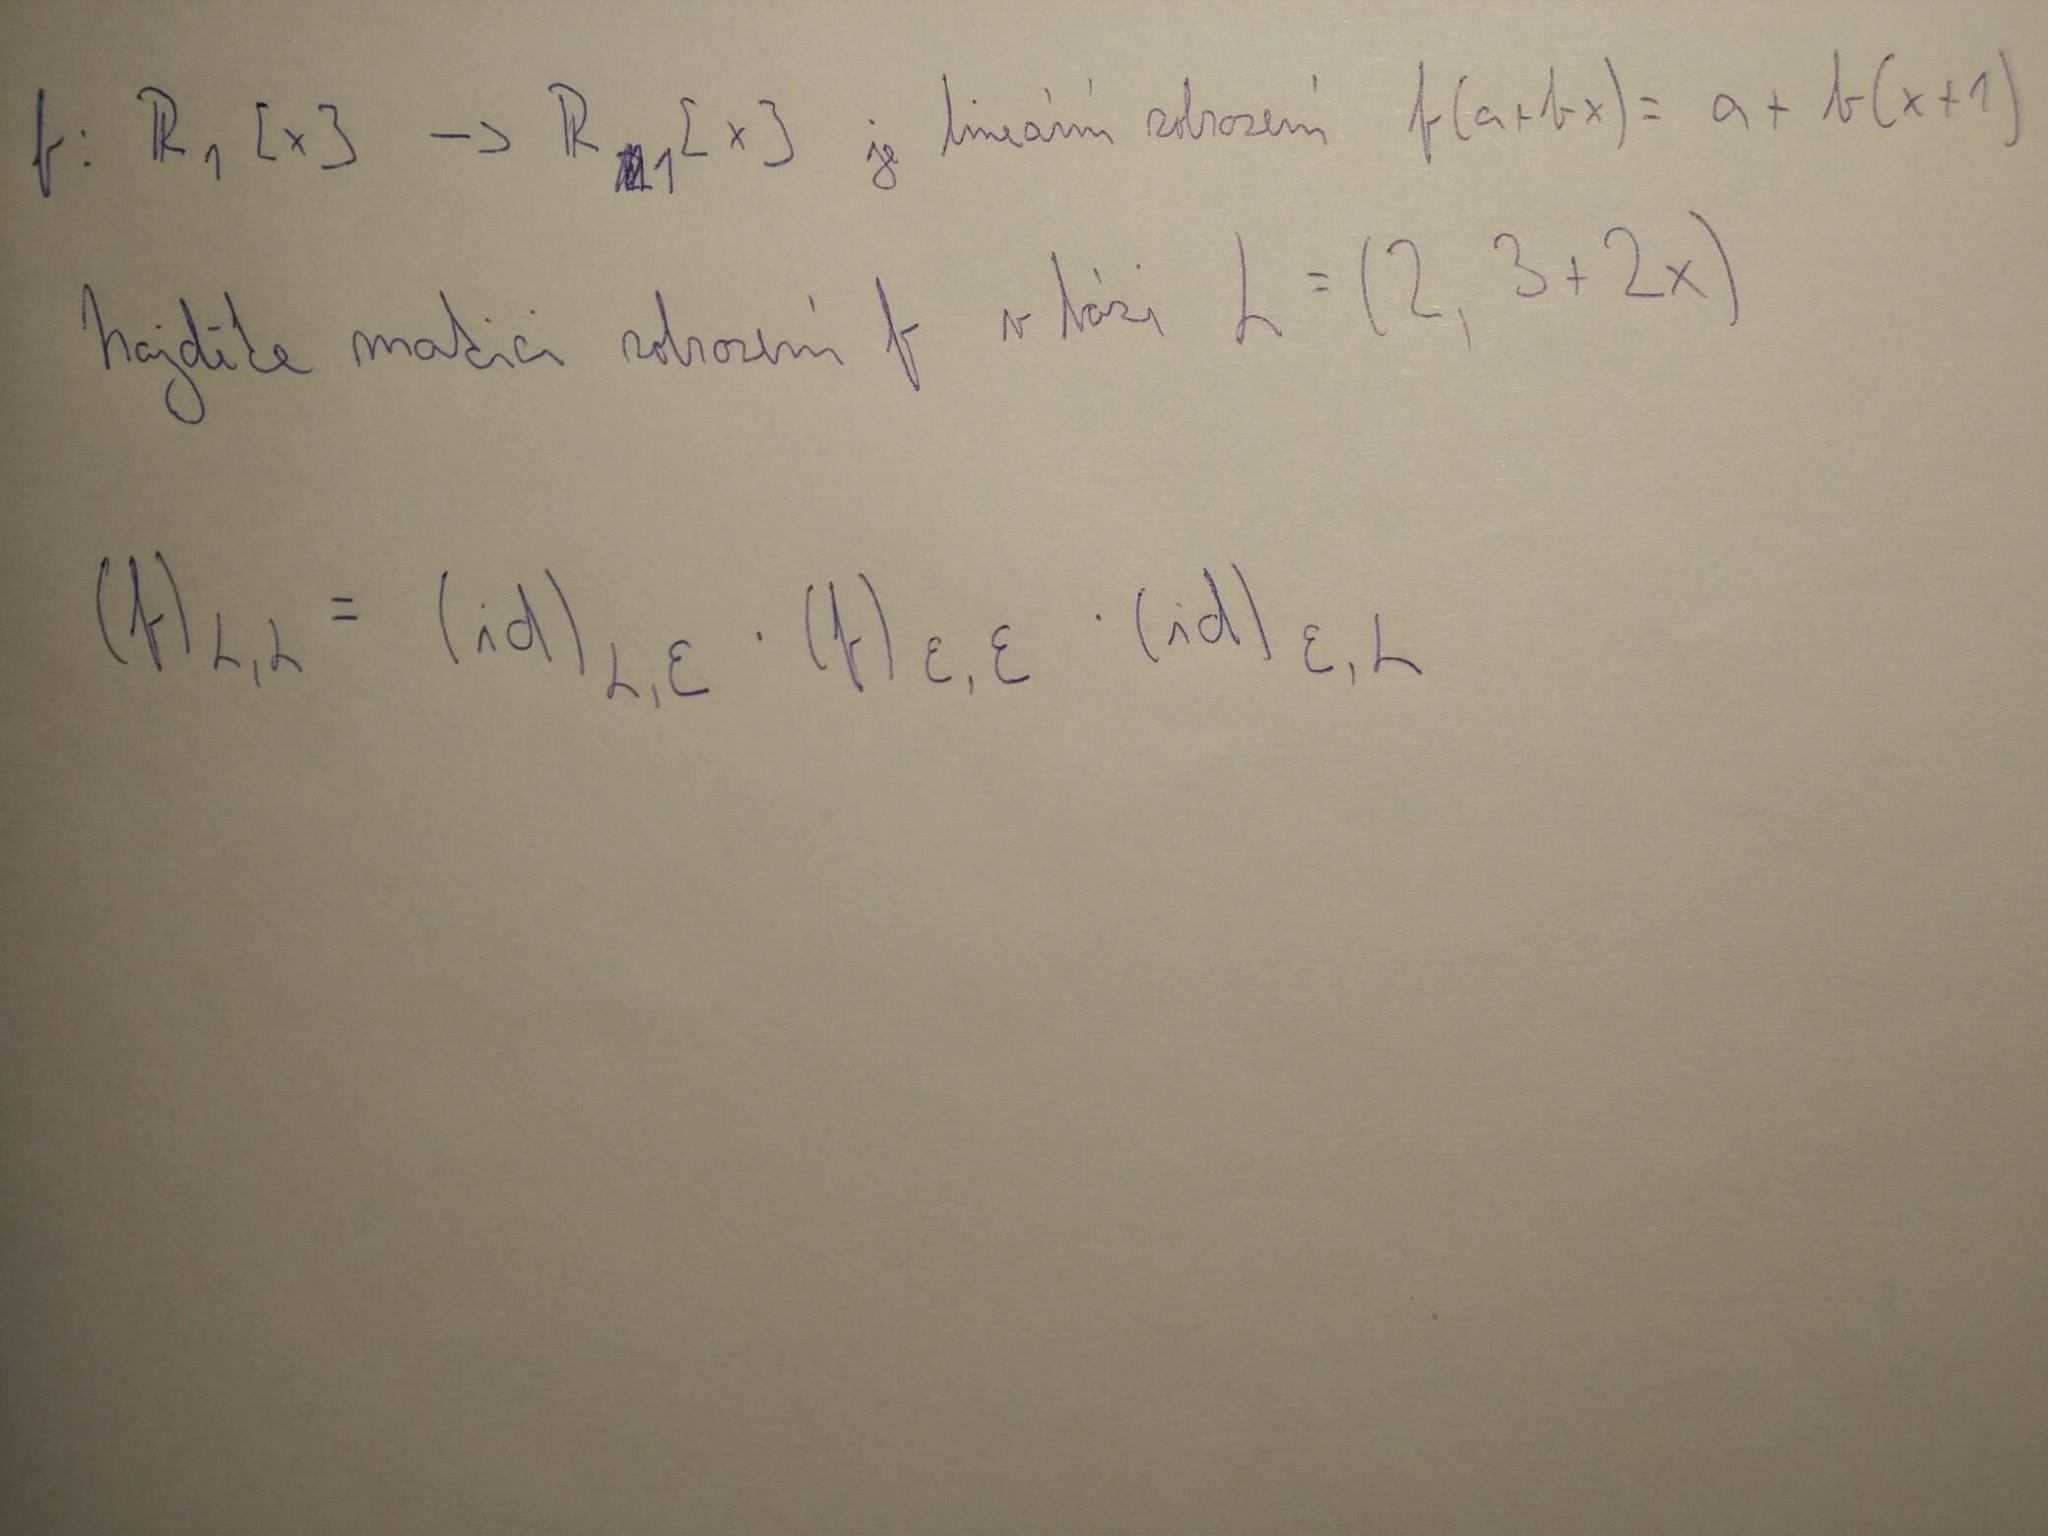 f: ℝ₁[x] -> ℝ₁[x] je lineární zobrazení f(a+bx) = a + b(x+1)
Najděte matici zobrazení f v bázi L = (2, 3+2x)
(f)_{L,L} = (id)_{L,ε} · (f)_{ε,ε} · (id)_{ε,L}